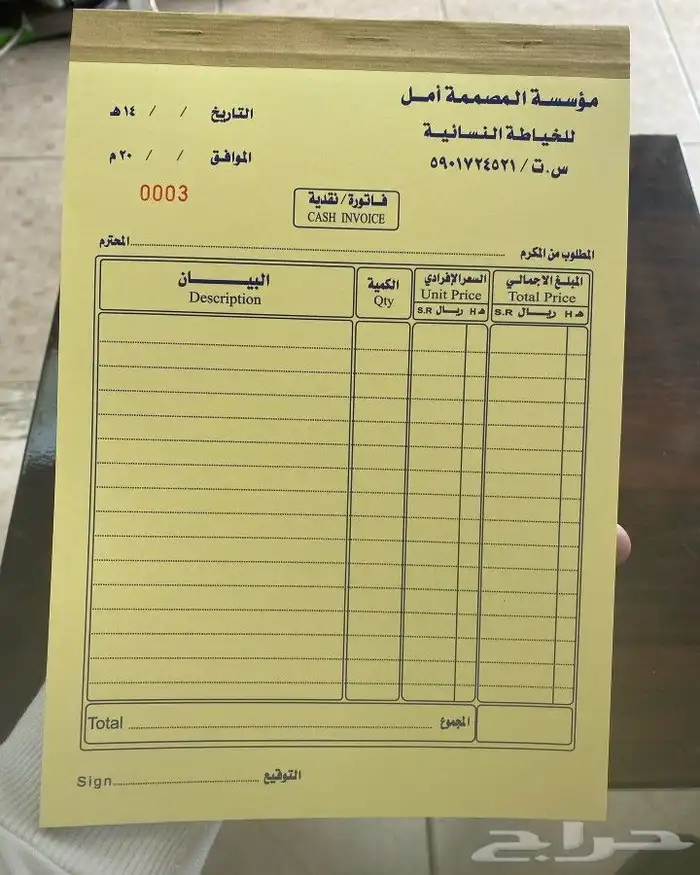 مؤسسة المصممة أمل
للخياطة النسائية
س.ت/ ٥٩٠١٧٢٤٥٢١
التاريخ / / ١٤هـ
الموافق / / ٢٠م
0003
فاتورة/نقدية
CASH INVOICE
المطلوب من المكرم المحترم
البيان الكمية السعر الإفرادي المبلغ الاجمالي
Description Qty Unit Price Total Price
S.R ريال H هـ S.R ريال H هـ
Total المجموع
Sign التوقيع
حراج